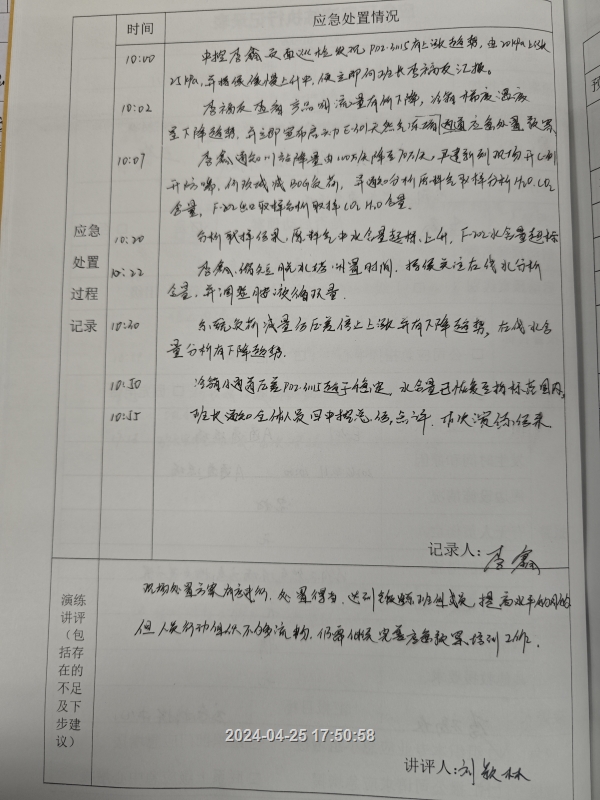 时间 应急处置情况
10:00 中控李鑫画面巡检发现,PD2.3115有上涨趋势,由20KPa上涨
25KPa,并持续缓慢上升中,便立即向班长李福友汇报。
10:02 李福友查看产品 流量有所下降,冷箱 温度
呈下降趋势,并立即宣布启动 天然气冻堵 通道应急处置预案
10:07 李鑫通知 降量由100%降至70%,
开 , 减BOG负荷,并通知分析原料气取样分析H2O.CO2
含量,F-202出口取样分析取样CO2 H2O含量。
应急处置过程记录
10:20 分析取样结果,原料气中水含量超标,上升,F-202水含量超标
10:22 李鑫缩短脱水塔 时间,持续关注在线水分析
含量,并调整胺液循环量.
10:30 负荷减量后压差停止上涨并有下降趋势,在线水含
量分析有下降趋势.
10:50 冷箱 通道压差PD2.3115趋于稳定,水含量已恢复至指标范围内,
10:55 班长通知全体人员回中控总结,点评,本次演练结束
记录人:李鑫
演练
讲评
(包
括存
在的
不足
及下
步建
议)
现场处置方案 ,处置得当,达到锻炼 ,提高水平的目的
但人员行动 不够流畅,仍需继续完善应急预案培训工作.
2024-04-25 17:50:58
讲评人:刘 林